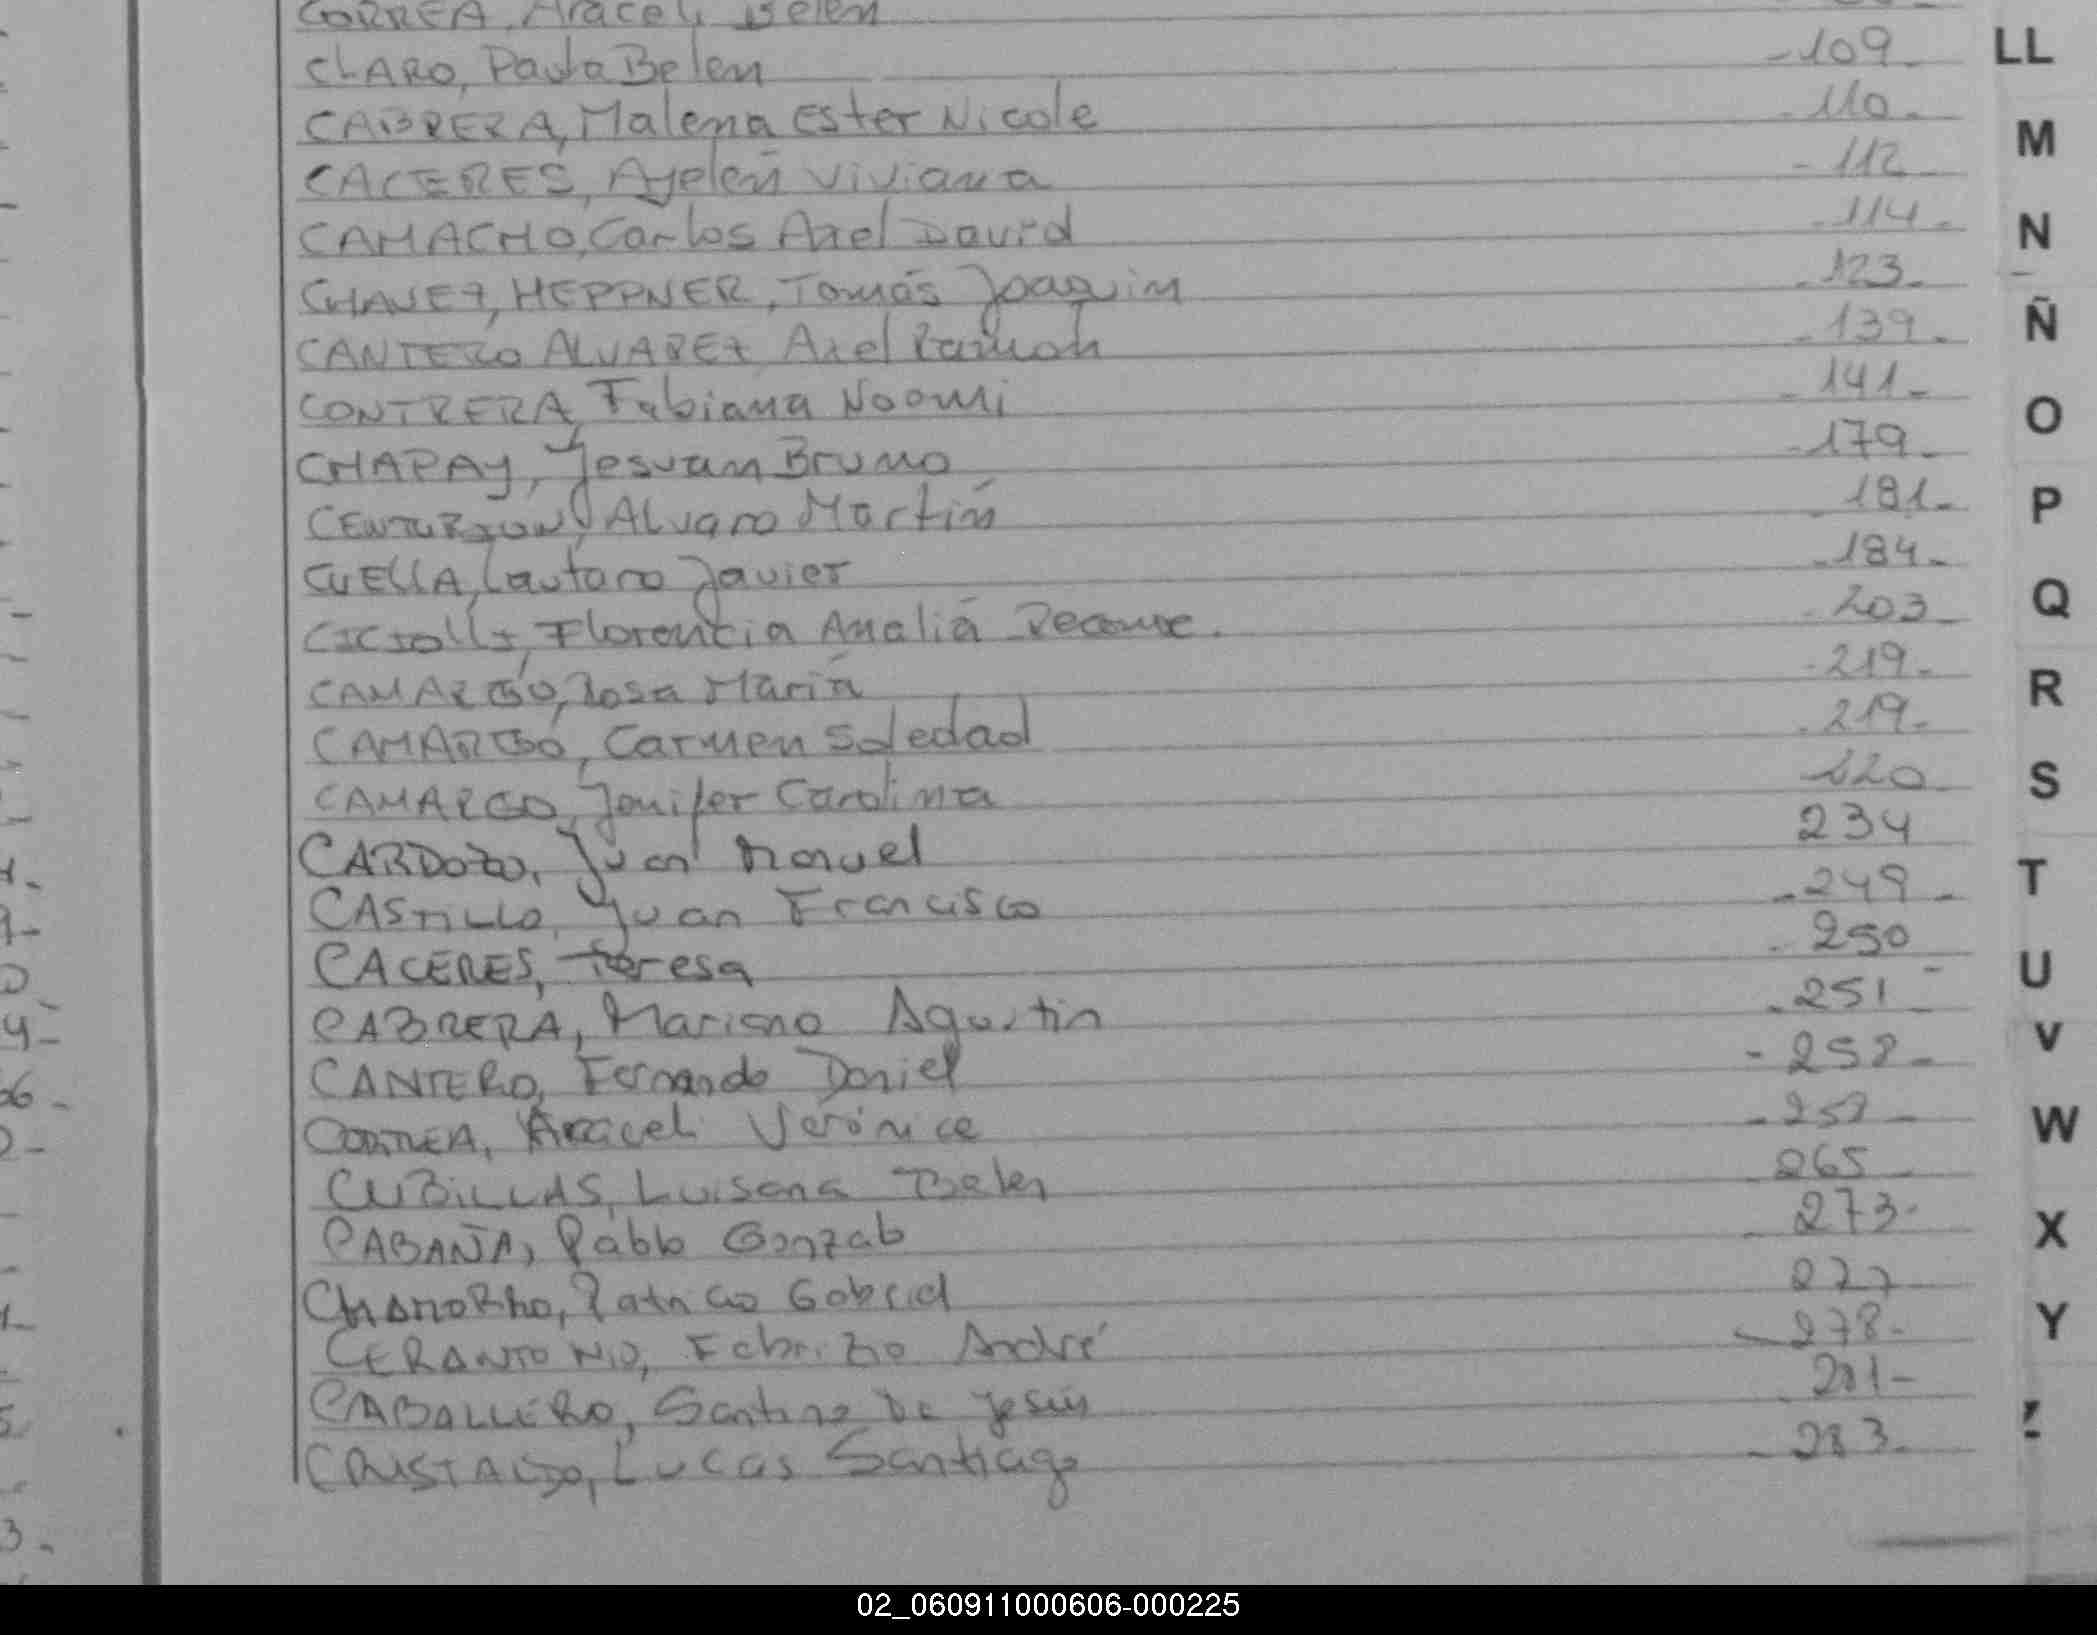 CORREA, Araceli Belen
CLARO, Paula Belen -109-
CABRERA, Malena Ester Nicole -110-
CACERES, Ayelén Viviana -112
CAMACHO, Carlos Axel David -114-
CHAVEZ, HEPPNER, Tomás Joaquim -123-
CANTERO ALVAREZ Axel Ramón -139-
CONTRERA, Fabiana Noomi -141-
CHAPAY, Jesuam Bruno -179-
CENTURION, Alvaro Martín -181-
CUELLA, Lautaro Javier -184-
Florencia Amalia -203-
CAMARGO, Rosa María -219-
CAMARGO, Carmen Soledad -219-
CAMARGO, Jenifer Carolina
CARDOZO, Juan Manuel 234
CASTILLO, Juan Francisco -249-
CACERES, Teresa - 250
CABRERA, Mariano Agustin -251-
CANTERO, Fernando Daniel -258-
CORREA, Araceli Verónica
CUBILLAS, Luisana Belen 265
CABAÑA, Pablo Gonzalo 273-
CHAMORRO, Patricio Gabriel 277
CERANTONIO, Fabrizio André -278-
CABALLERO, Santino De Jesús 281-
CRISTALDO, Lucas Santiago -283-
LL
M
N
Ñ
O
P
Q
R
S
T
U
V
W
X
Y
02_060911000606-000225